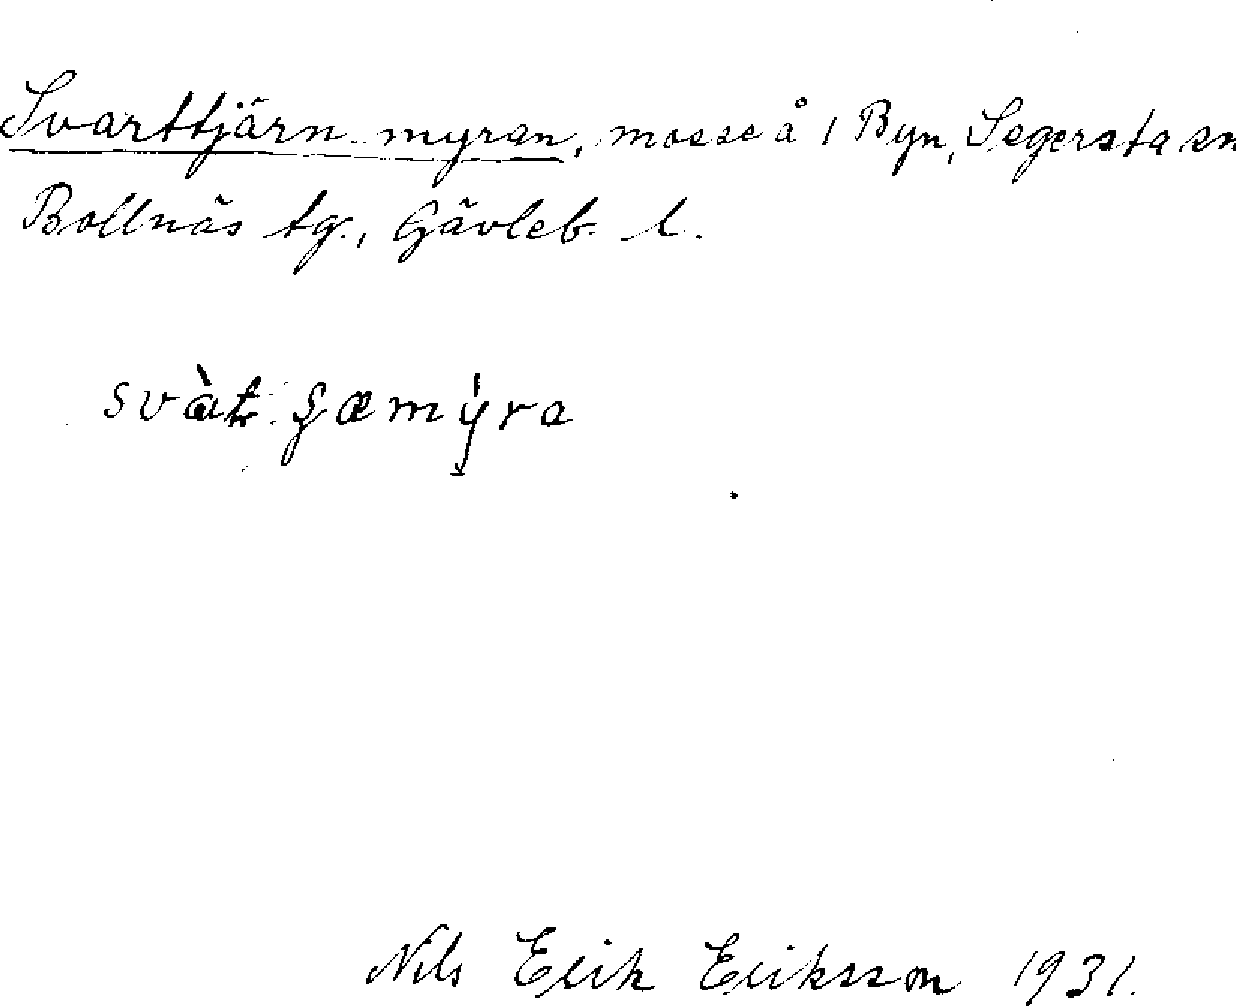 Svarttjärn myran, mosse å 1 Byn, Segersta sn
Bollnäs tg., Gävleb. l.
svàt
Nils Erik Eriksson 1931.